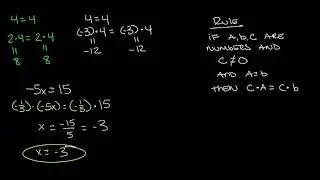 4 = 4
2·4 = 2·4
"
"
8
8
4 = 4
(-3)·4 = (-3)·4
"
"
-12
-12
-5x = 15
(-1/5)·(-5x) = (-1/5)·15
x = -15/5 = -3
x = -3
Rule
IF A, b, C ARE
NUMBERS AND
C ≠ 0
AND A = b
THEN C·A = C·b